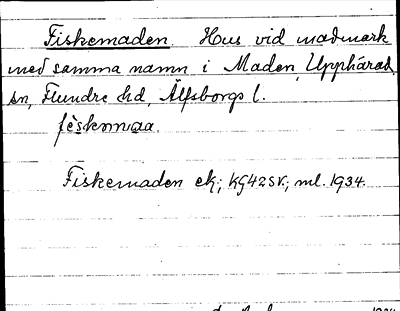 Fiskemaden. Hus vid madmark
med samma namn i Maden, Upphärad
sn, Flundre hd, Älfsborgs l.
fèskomaa.
Fiskemaden ek; kg42SV.; ml. 1934.